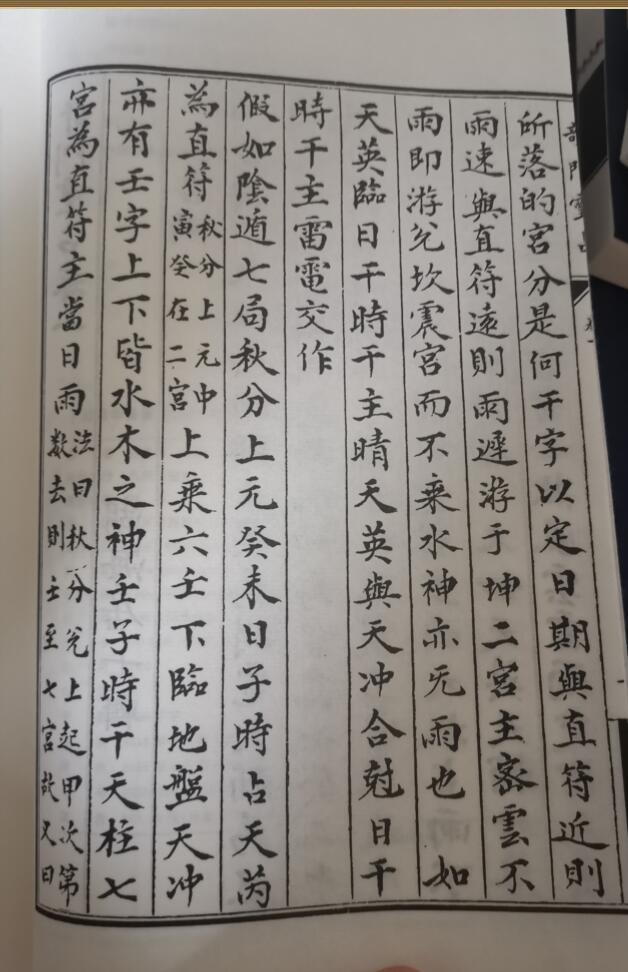 所落的宮分是何干字以定日期與直符近則
雨速與直符遠則雨遲游于坤二宮主密雲不
雨即游兌坎震宮而不乘水神亦无雨也如
天英臨日干時干主晴天英與天冲合尅日干
時干主雷電交作
假如陰遁七局秋分上元癸未日子時占天芮
為直符秋分上元中寅癸在二宮上乘六壬下臨地盤天冲
亦有壬字上下皆水木之神壬子時干天柱七
宮為直符主當日雨法曰秋分兌上起甲次第数去則壬至七宮故又曰